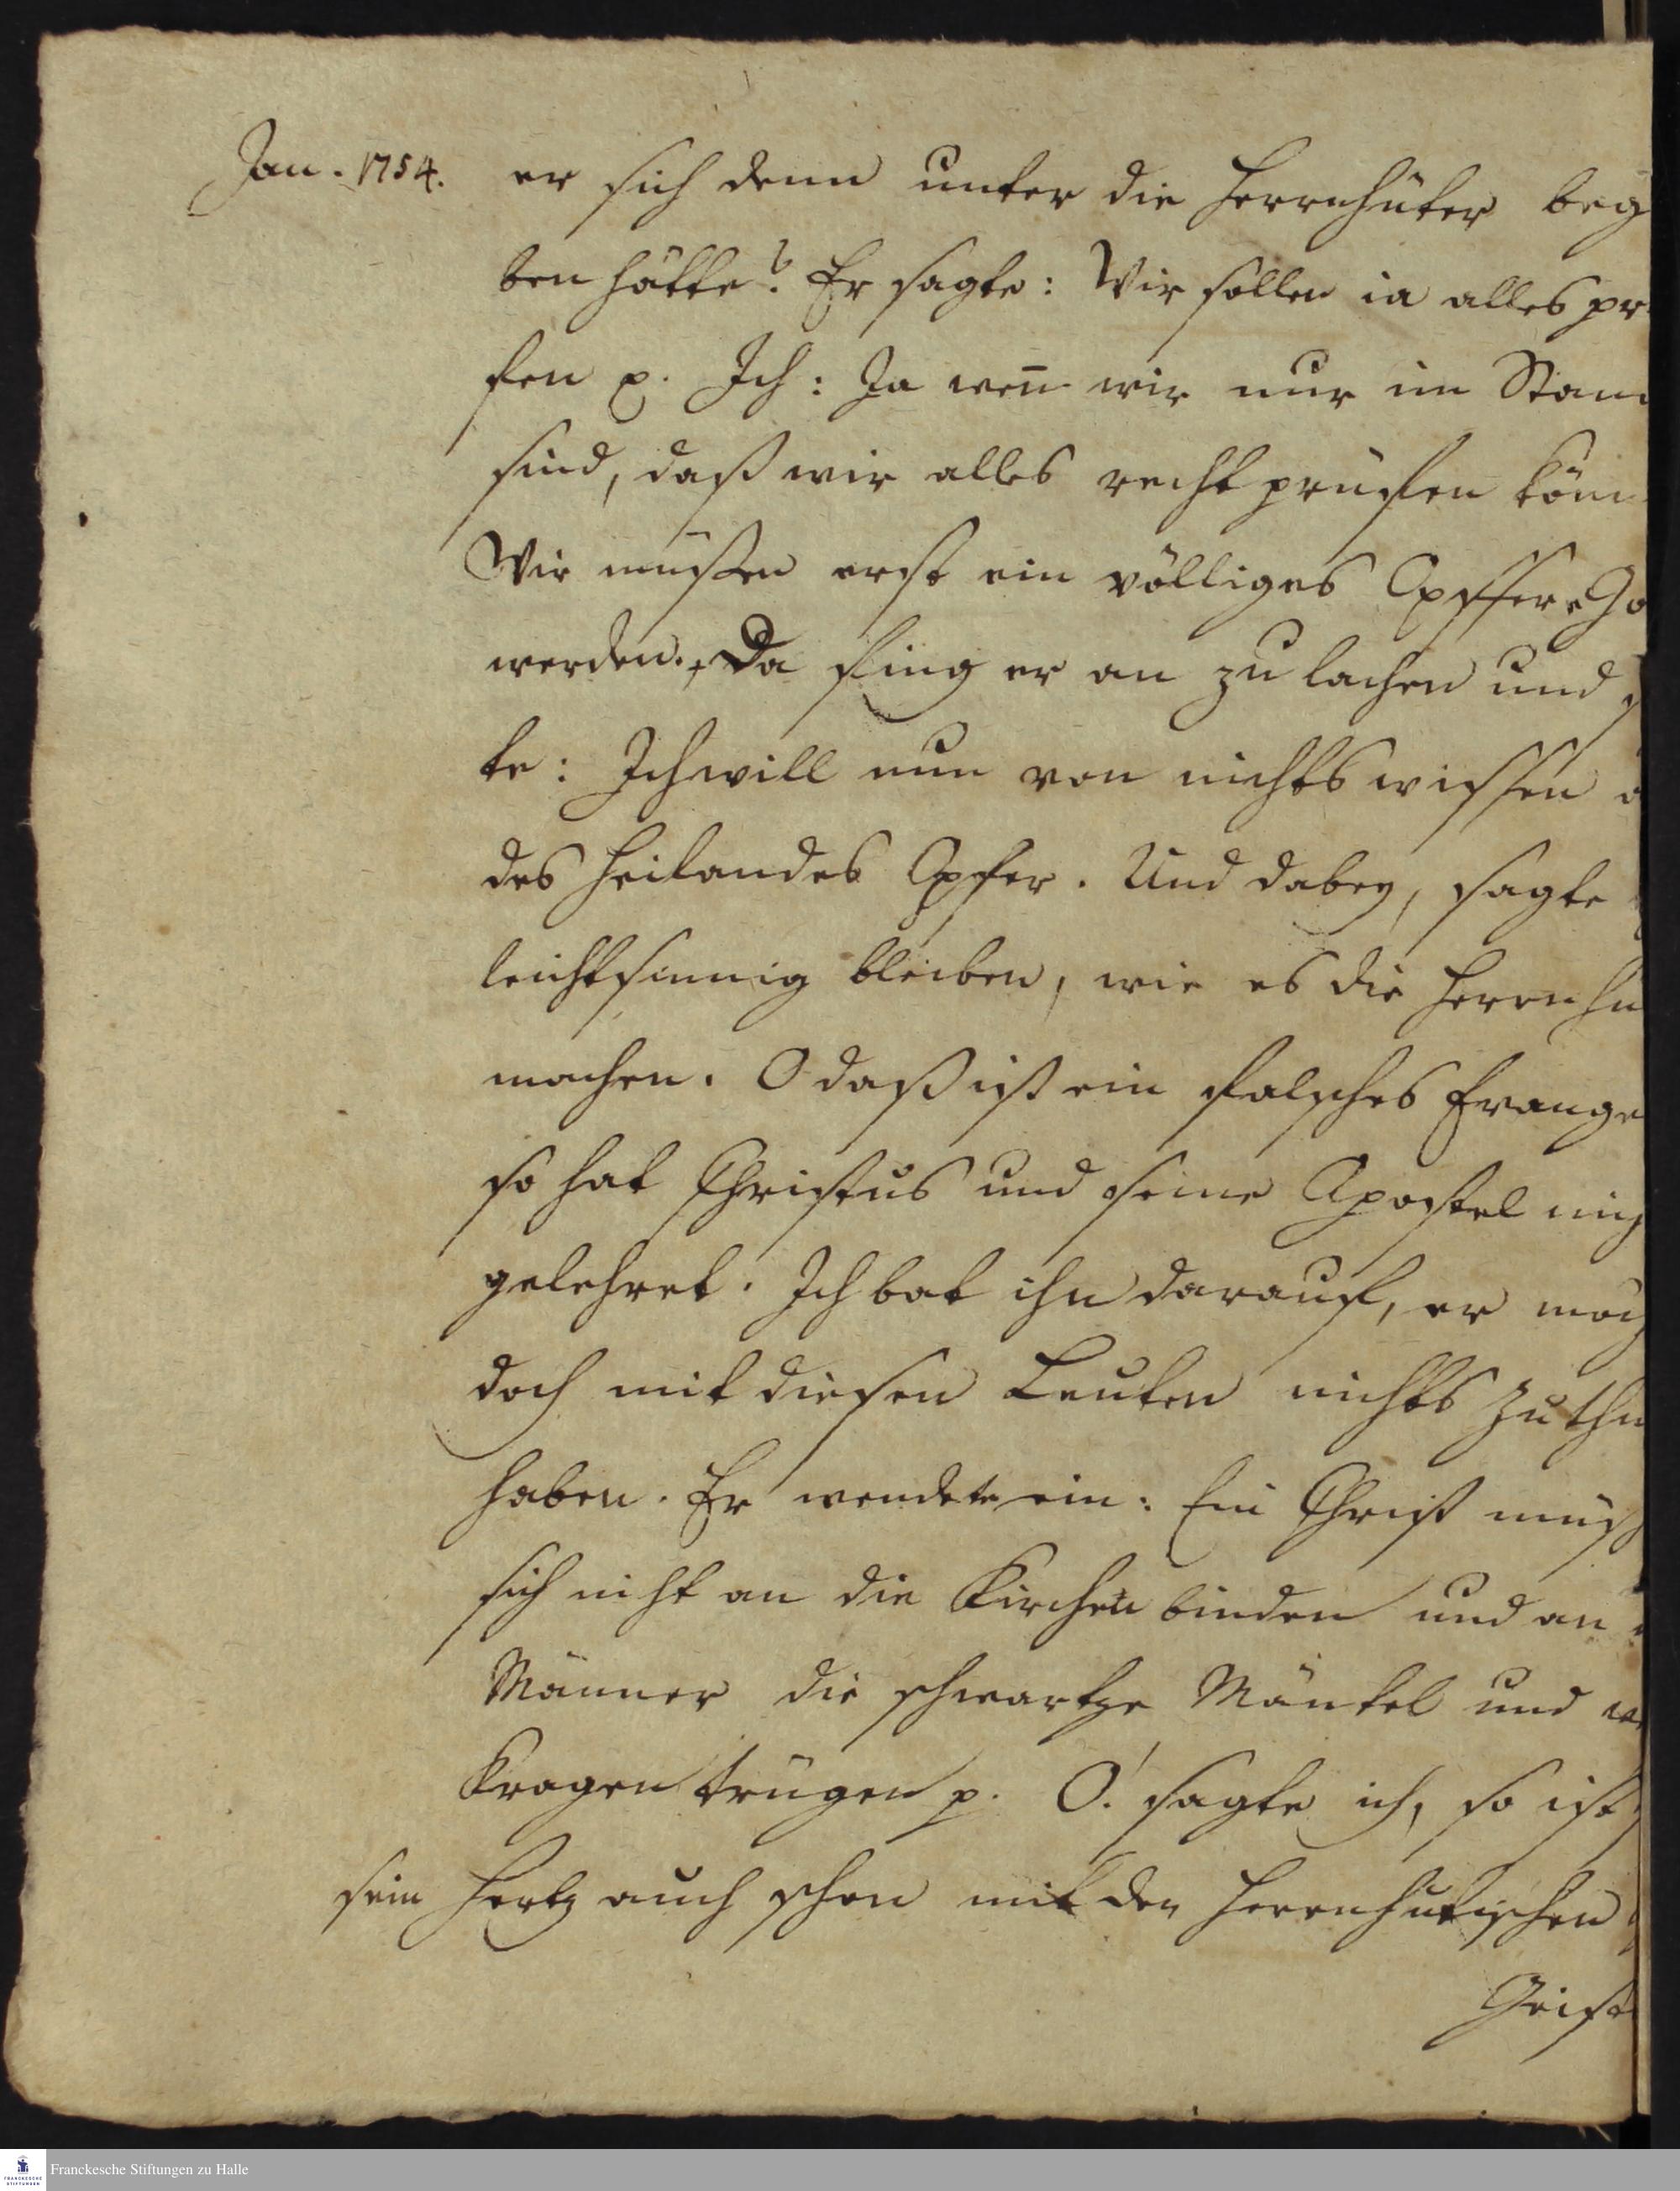 Jan. 1754.
er sich denn unter die Herrnhüter beg
ben hätte? Er sagte: Wir sollen ia alles pr
fen p. Ich: Ja wen̄ wir nur im Stan
sind, daß wir alles recht prüfen kön
Wir müssen erst ein völliges Opffer
werden. Da fing er an zu lachen und
te: Ich will nun von nichts wissen a
des Heilandes Opfer. Und dabey, sagte
leichtsinnig bleiben, wie es die Herrnhü
machen. O daß ist ein falsches Evange
so hat Christus und seine Apostel nich
gelehret. Ich bat ihn darauf, er möch
doch mit diesen Leuten nichts zu thu
haben. Er wendete ein: Ein Christ müß
sich nicht an die Kirchen binden und an
Männer die schwartze Mäntel und
Kragen trügen p. O! sagte ich, so ist
sein Hertz auch schon mit der Herrnhutischen
Geist
Franckesche Stiftungen zu Halle